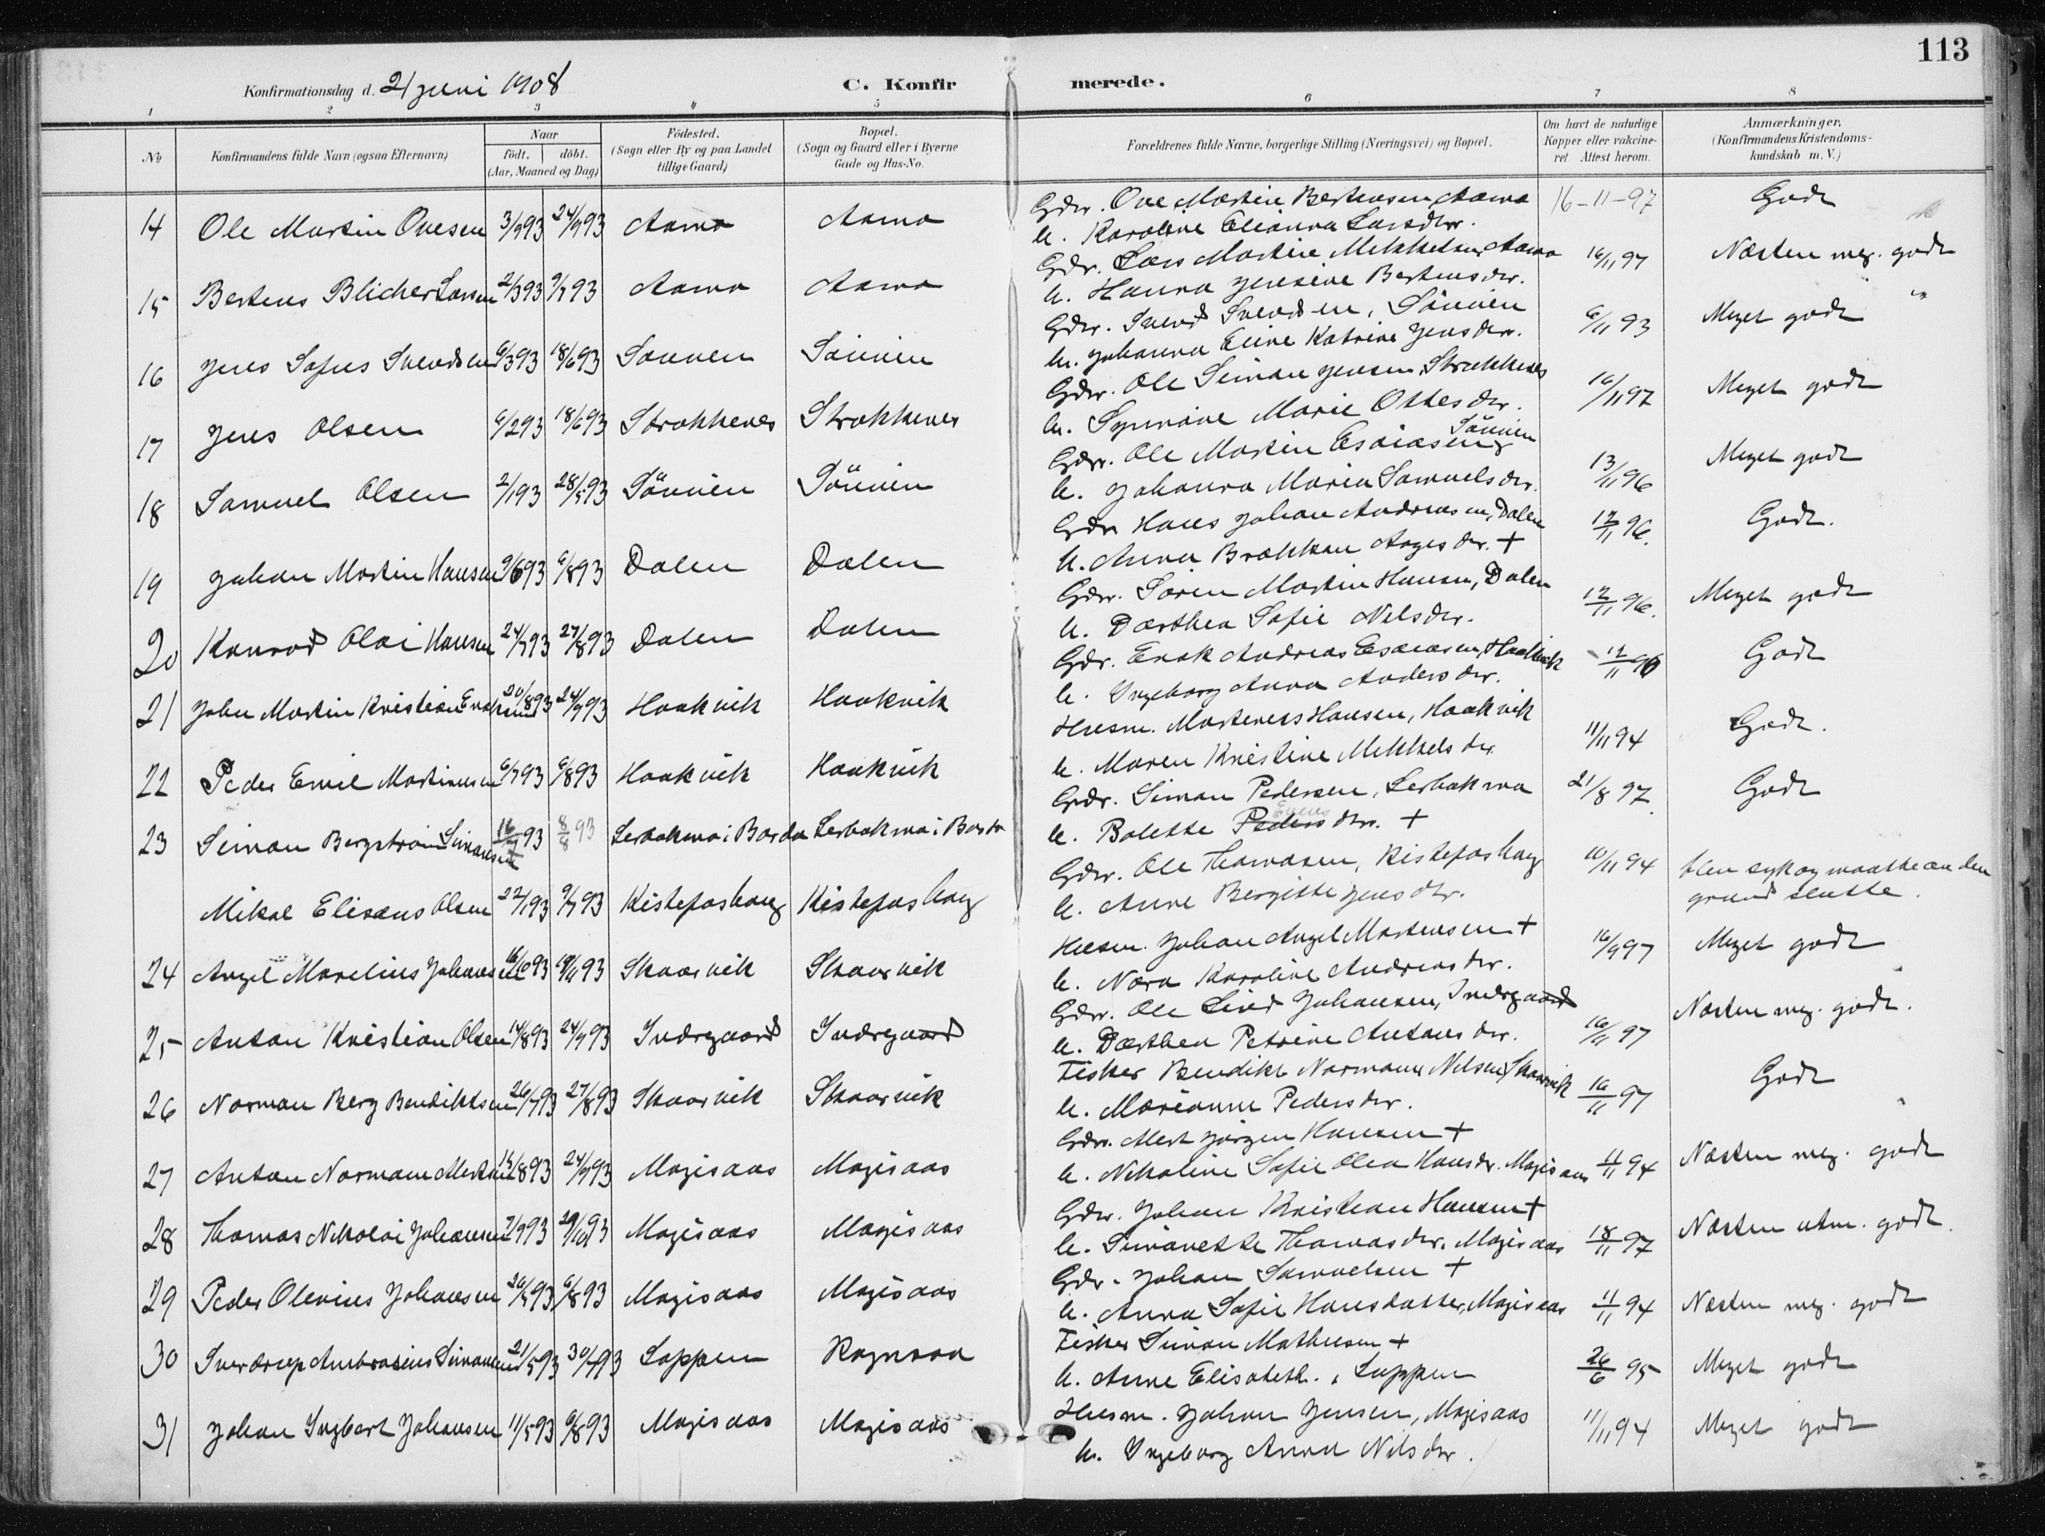 113
Konfirmationsdag d. 21 juni 1908
C. Konfirmerede.
1 2 3 4 5 6 7 8
No
Konfirmandens fulde Navn (ogsaa Efternavn)
Naar
født. døbt.
(Aar, Maaned og Dag)
Födested.
(Sogn eller By og paa Landet tillige Gaard)
Bopæl.
(Sogn og Gaard eller i Byerne Gade og Hus-No.
Forældrenes fulde Navne, borgerlige Stilling (Næringsvei) og Bopæl.
Om havt de naturlige Kopper eller vakcineret Attest herom.
Anmærkninger,
(Konfirmandens Kristendomskundskab m. V.)
14 Ole Martin Ovesen 3/9 93 24/9 93 Aamo Aamo Gdr. Ove Martin Bertensen, Aamo 16-11-97 Godt
h. Karoline Elianna Larsdtr.
15 Bertens Blicher Larsen 2/3 93 9/7 93 Aamo Aamo Gdr. Lars Martin Mikkelsen, Aamo 16/11 97 Næsten meg. godt
h. Hanna Jensine Bertensdtr.
16 Jens Sofus Svendsen 6/3 93 18/6 93 Sannen Sännen Gdr. Svend Svendsen, Sönnien 6/11 93 Meget godt
h. Johanna Eline Katrine Jensdtr.
17 Jens Olsen 6/2 93 18/6 93 Strokkenes Strokkenes Gdr. Ole Siman Jensen, Strokkenes 16/11 97 Meget godt
h. Synnöve Marie Ottesdtr.
18 Samuel Olsen 2/1 93 28/5 93 Sönnien Sönnien Gdr. Ole Martin Esaiasen, Sönnien 13/11 96 Meget godt
h. Johanna Maria Samuelsdtr.
19 Johan Martin Hansen 9/6 93 6/8 93 Dalen Dalen Gdr. Hans Johan Andreasen, Dalen 12/11 96. Godt.
h. Anna Brækkan Aagesdtr. +
20 Konrad Olai Hansen 24/7 93 27/8 93 Dalen Dalen Gdr. Sören Martin Hansen, Dalen 12/11 96. Meget godt
h. Dorthea Sofie Nilsdtr.
21 John Martin Kristian Enoksen 20/8 93 24/9 93 Haakvik Haakvik Gdr. Enok Andreas Esaiasen, Haakvik 12/11 96 Godt
h. Ingeborg Anna Andersdtr.
22 Peder Emil Martinusen 6/7 93 6/8 93 Haakvik Haakvik Husm. Martinus Hansen, Haakvik 11/11 94 Godt.
h. Maren Kristine Mikkelsdtr
23 Siman Bergström Simonsen 16/7 93 8/8 93 Lerbakmo i Bardo Lerbakmo i Bardo Gdr. Siman Pedersen, Lerbakmo 21/8 97. Godt
h. Bolette Pedersdtr. +
Mikal Elisæus Olsen 22/1 93 9/7 93 Kistefoshaug Kistefoshaug Gdr. Ole Thomasen, Kistefoshaug 10/11 94 blev syk og maatte av den grund slutte.
h. Anne Bergitte Jensdtr.
24 Angel Marelius Johansen 16/10 93 19/11 93 Skaarvik Skaarvik Husm. Johan Angel Mortensen + 16/9 97 Meget godt
h. Nora Karoline Andreasdtr.
25 Anton Kristian Olsen 14/8 93 24/9 93 Indregaard Indregaard Gdr. Ole Lind Johansen, Indregaard 16/11 97 Næsten meg. godt.
h. Dorthea Petrine Antonsdtr.
26 Norman Berg Bendiktsen 26/7 93 27/8 93 Skaarvik Skaarvik Fisker Bendikt Normann Nilsen, Skaarvik 16/11 97 Godt
h. Marianne Pedersdtr.
27 Anton Normann Mertsen 14/8 93 24/9 93 Magisaas Magisaas Gdr. Mert Jörgen Hansen + 11/11 94 Næsten meg. godt
h. Nikoline Sofie Olea Hansdr. Magisaas
28 Thomas Nikolai Johansen 7/9 93 29/10 93 Magisaas Magisaas Gdr. Johan Kristian Hansen + 18/11 97 Næsten utm. godt.
h. Simonette Thomasdtr. Magisaas
29 Peder Olevius Johansen 26/5 93 6/8 93 Magisaas Magisaas Gdr. Johan Samuelsen + 11/11 94 Næsten meg. godt
h. Anna Sofie Hansdatter, Magisaas
30 Sverdrup Ambrosius Simonsen 21/5 93 30/7 93 Loppen Fisker Simon Mathisen + 26/6 95 Meget godt
h. Anne Elisabeth., Loppen
31 Johan Ingbart Johansen 11/5 93 6/8 93 Magisaas Magisaas Husm. Johan Jensen, Magisaas 11/11 94 Meget godt
h. Ingeborg Anna Nilsdtr.